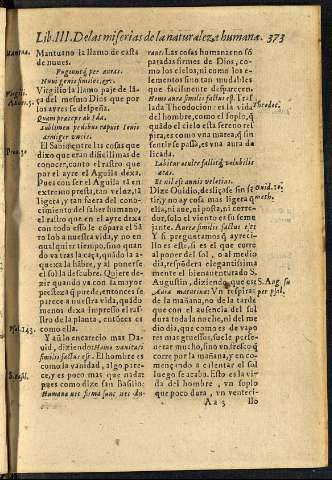 Lib. III. De las miserias de la naturaleza humana. 373
Mantua.
Mantuano la llamo de casta
de nuues.
Virgili.
Virgilio la llamo paje de la-
ça del mesmo Dios que por
los ayres se despeña.
sublimem pedibus rapuit Iouis
armiger vncis.
Prou. 30
El Sabio entre las cosas que
dixo que eran dificilimas de
conocer, canto el rastro que
por el ayre el Aguila dexa.
Pues con ser el Aguila tā en
extremo posta, tan veloz, tā
ligera, y tan fuera del cono-
cimiento del saber humano,
el rastro que en el ayre dexa
con todo esso le cōpara el Sā
to Iob a nuestra vida, y no en
qualquier tiempo, sino quan
do va tras la caça, quādo la a-
quexa la hābre, y al ponerse
el sol la descubre. Quiere de-
zir quando va con la mayor
presteza q̄ puede, entonces se
parece a nuestra vida, quādo
menos dexa impresso el ras-
tro de la planta, entōces es
como ella.
Psal. 143.
Y aũ lo encarecio mas Da-
uid, diziendo: Homo vanitati
similis factus est. El hombre es
como la vanidad, algo pare-
ce, y es poco mas que nada;
S. Basil.
pues como dize san Basilio:
raue. Las cosas humanas no sō
paradas firmes de Dios, co-
mo los cielos, ni como los e-
lementos sino tan mudables
que facilmente desparecen,
Homo vanitati similis factus est. Tras
Theodor.
lada Theodocion: es la vida
del hombre, como el soplo, q̄
quādo el cielo esta sereno res
pira, es como vna marea, q̄ sin
sentirse passa, es vna aura de
licada.
Labitur occulte fallitq̃, volubilis
aetas.
Et nil est annis velotius.
Ouid. 10.
meth.
Dize Ouidio, desliçase sin sē
tir, y no ay cosa mas ligera q̄
ella, ni aue, ni posta, ni corre-
dor, solo el viento es su seme
jante. Aurea similis factus est:
Y si preguntamos q̄ ayrezi-
llo es este, si es el que corre
al poner del sol, o al medio
dia, respōdera elegantissima
mente el bienauenturado S.
S. Aug. su
per psal.
Augustin, diziendo, que es
Aura matutina: Vn respirar
de la mañana, no de la tarde
que con el ausencia del sol
dura toda la noche, ni del me
dio dia, que como es de vapo
res mas gruessos, suele perse-
uerar mucho, sino vn fresco, q̄
corre por la mañana, y en co-
mençando a calentar el sol
luego se acaba. Esto es la vi-
da del hombre, vn soplo
que poco dura, vn venteri-
Aa 3 llo